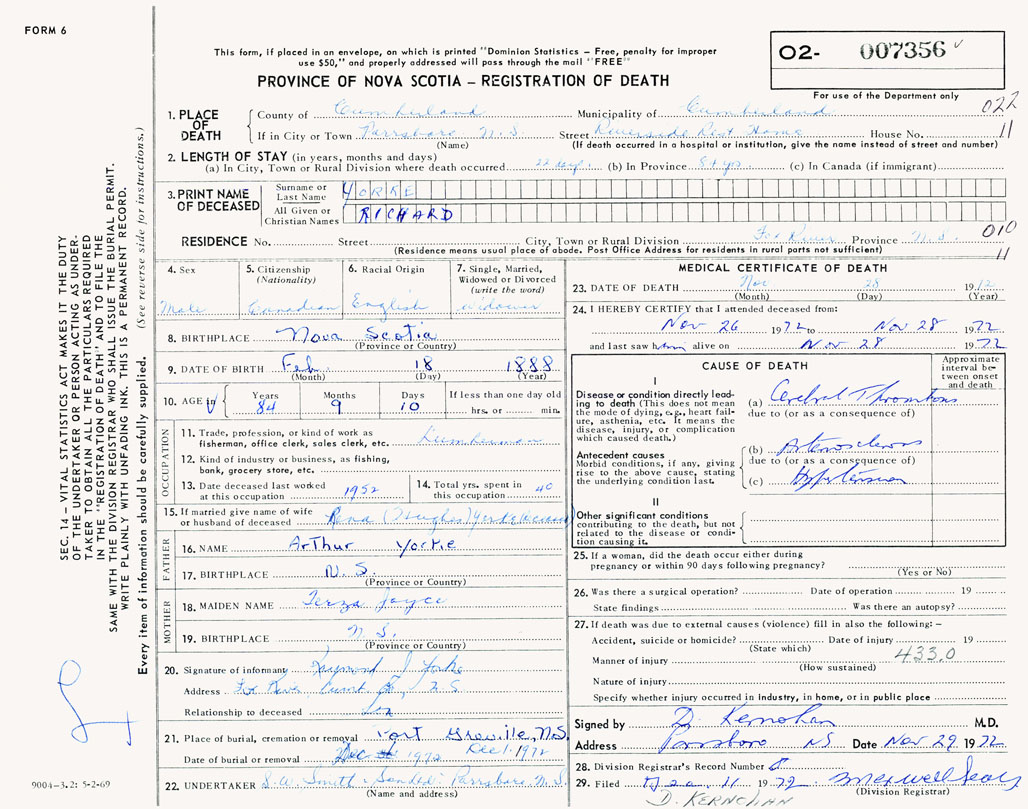 FORM 6
This form, if placed in an envelope, on which is printed "Dominion Statistics – Free, penalty for improper
use $50," and properly addressed will pass through the mail "FREE"
PROVINCE OF NOVA SCOTIA – REGISTRATION OF DEATH
O2- 007356
For use of the Department only
022
11
1. PLACE OF DEATH
County of Cumberland Municipality of Cumberland
If in City or Town Parrsboro N.S. Street Riverside Rest Home House No.
(Name) (If death occurred in a hospital or institution, give the name instead of street and number)
2. LENGTH OF STAY (in years, months and days)
(a) In City, Town or Rural Division where death occurred 22 days. (b) In Province 84 yrs. (c) In Canada (if immigrant)
3. PRINT NAME OF DECEASED
Surname or Last Name YORKE
All Given or Christian Names RICHARD
010
11
RESIDENCE No. Street City, Town or Rural Division Fox River Province N.S.
(Residence means usual place of abode. Post Office Address for residents in rural parts not sufficient)
4. Sex Male
5. Citizenship (Nationality) Canadian
6. Racial Origin English
7. Single, Married, Widowed or Divorced (write the word) Widower
8. BIRTHPLACE Nova Scotia
(Province or Country)
9. DATE OF BIRTH Feb. 18 1888
(Month) (Day) (Year)
10. AGE in Years 84 Months 9 Days 10 If less than one day old hrs. or min.
OCCUPATION
11. Trade, profession, or kind of work as fisherman, office clerk, sales clerk, etc. Lumberman
12. Kind of industry or business, as fishing, bank, grocery store, etc.
13. Date deceased last worked at this occupation 1952
14. Total yrs. spent in this occupation 40
15. If married give name of wife or husband of deceased Rena (Hughes) Yorke
FATHER
16. NAME Arthur Yorke
17. BIRTHPLACE N.S.
(Province or Country)
MOTHER
18. MAIDEN NAME Terza Joyce
19. BIRTHPLACE N.S.
(Province or Country)
20. Signature of informant Raymond J Yorke
Address Fox River
Relationship to deceased Son
21. Place of burial, cremation or removal Port Greville, N.S.
Date of burial or removal 1972 Dec 1. 1972
22. UNDERTAKER S.W. Smith Parrsboro N.S.
(Name and address)
MEDICAL CERTIFICATE OF DEATH
23. DATE OF DEATH Nov 28 1972
(Month) (Day) (Year)
24. I HEREBY CERTIFY that I attended deceased from:
Nov 26 1972 to Nov 28 1972
and last saw him alive on Nov 28 1972
CAUSE OF DEATH
Approximate interval between onset and death
I
Disease or condition directly leading to death (This does not mean the mode of dying, e.g., heart failure, asthenia, etc. It means the disease, injury, or complication which caused death.)
(a) Cerebral Thrombosis
due to (or as a consequence of)
Antecedent causes
Morbid conditions, if any, giving rise to the above cause, stating the underlying condition last.
(b) Arteriosclerosis
due to (or as a consequence of)
(c) Hypertension
II
Other significant conditions contributing to the death, but not related to the disease or condition causing it.
25. If a woman, did the death occur either during pregnancy or within 90 days following pregnancy?
(Yes or No)
26. Was there a surgical operation? Date of operation 19
State findings Was there an autopsy?
27. If death was due to external causes (violence) fill in also the following: –
Accident, suicide or homicide? Date of injury 19
(State which)
Manner of injury 433.0
(How sustained)
Nature of injury
Specify whether injury occurred in industry, in home, or in public place
Signed by D. Kernohan M.D.
Address Parrsboro NS Date Nov 29 1972
28. Division Registrar's Record Number
29. Filed Dec 11 1972 Maxwell
(Division Registrar)
D. KERNOHAN
SEC. 14 – VITAL STATISTICS ACT MAKES IT THE DUTY
OF THE UNDERTAKER OR PERSON ACTING AS UNDER-
TAKER TO OBTAIN ALL THE PARTICULARS REQUIRED
IN THE "REGISTRATION OF DEATH" AND TO FILE THE
SAME WITH THE DIVISION REGISTRAR WHO SHALL ISSUE THE BURIAL PERMIT.
WRITE PLAINLY WITH UNFADING INK. THIS IS A PERMANENT RECORD.
Every item of information should be carefully supplied. (See reverse side for instructions.)
9004-3.2: 5-2-69